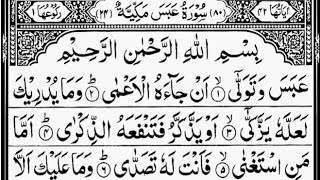 اٰیَاتُهَا ٤٢ (٨٠) سُوْرَةُ عَبَسَ مَكِّيَّةٌ (٢٤) رُكُوْعُهَا ١
بِسْمِ اللّٰهِ الرَّحْمٰنِ الرَّحِيْمِ
عَبَسَ وَتَوَلّٰىۤ ۙ﴿۱﴾ اَنْ جَآءَهُ الْاَعْمٰى ؕ﴿۲﴾ وَمَا يُدْرِيْكَ
لَعَلَّهٗ يَزَّكّٰىۤ ۙ﴿۳﴾ اَوْ يَذَّكَّرُ فَتَنْفَعَهُ الذِّكْرٰى ؕ﴿۴﴾ اَمَّا
مَنِ اسْتَغْنٰى ۙ﴿۵﴾ فَاَنْتَ لَهٗ تَصَدّٰى ؕ﴿۶﴾ وَمَا عَلَيْكَ اَلَّا